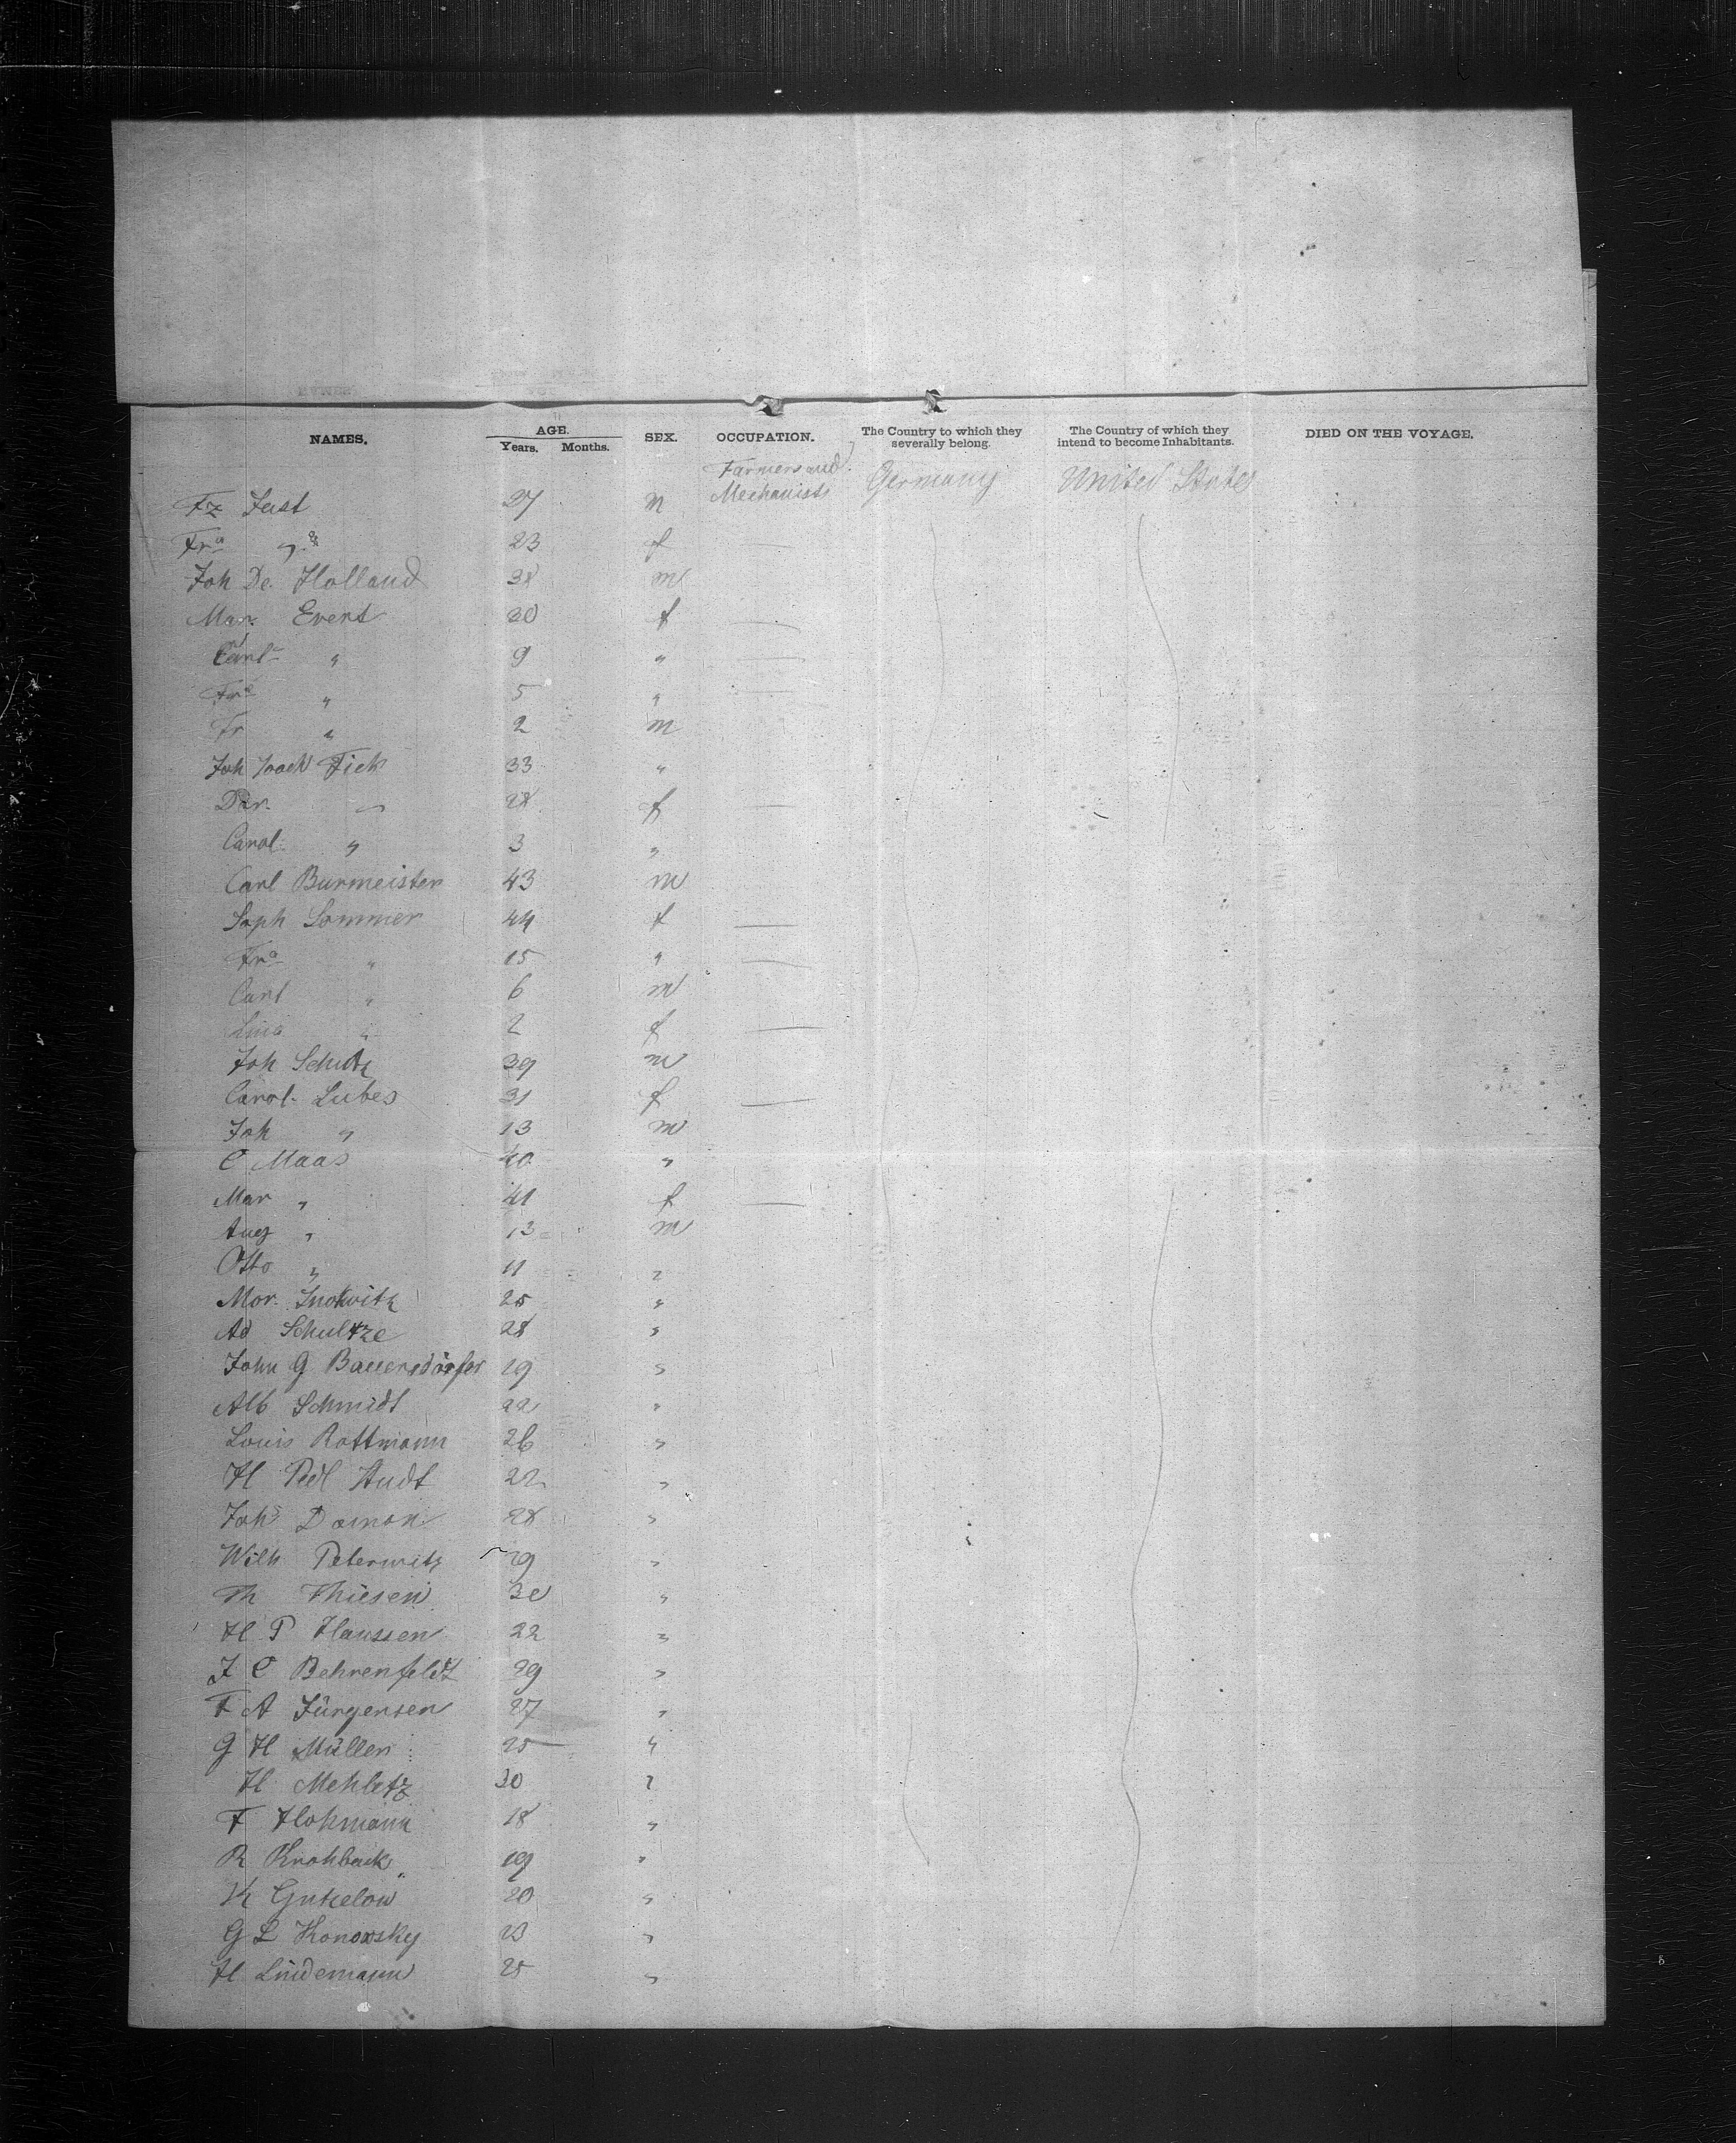 NAMES. AGE. Years. Months. SEX. OCCUPATION. The Country to which they severally belong. The Country of which they intend to become Inhabitants. DIED ON THE VOYAGE.
Farmers and
Mechanists Germany United States
Fz Just 27 m
Fra " 23 f —
Joh De. Holland 38 m
Mar. Evert 30 f —
Carl " 9 " —
Fre " 5 " —
Fr " 2 m
Joh Joach Fick 33 "
Dor. " 28 f —
Carol. " 3 "
Carl Burmeister 43 m
Soph Sommer 44 f —
Fra " 15 " —
Carl " 6 m
Lina " 2 f —
Joh 39 m
Carol. Lubes 31 f —
Joh " 13 m
C Maas 40 "
Mar " 41 f —
Aug " 13 m
Otto " 11 "
Mor. 25 "
Ad Schultze 28 "
John G Bauersdörfer 29 "
Alb Schmidt 22 "
Louis Rottmann 26 "
H 22 "
Johs 28 "
Wilh Peterwitz 29 "
Th Thiesen 30 "
H P Hanssen 22 "
J C Behrenfeldt 29 "
F A Jürgensen 27 "
G H Müller 25 "
H Mehletz 30 "
F Hohmann 18 "
R Krohback 19 "
Gutzelow 20 "
G L Konowsky 23 "
H Lindemann 25 "